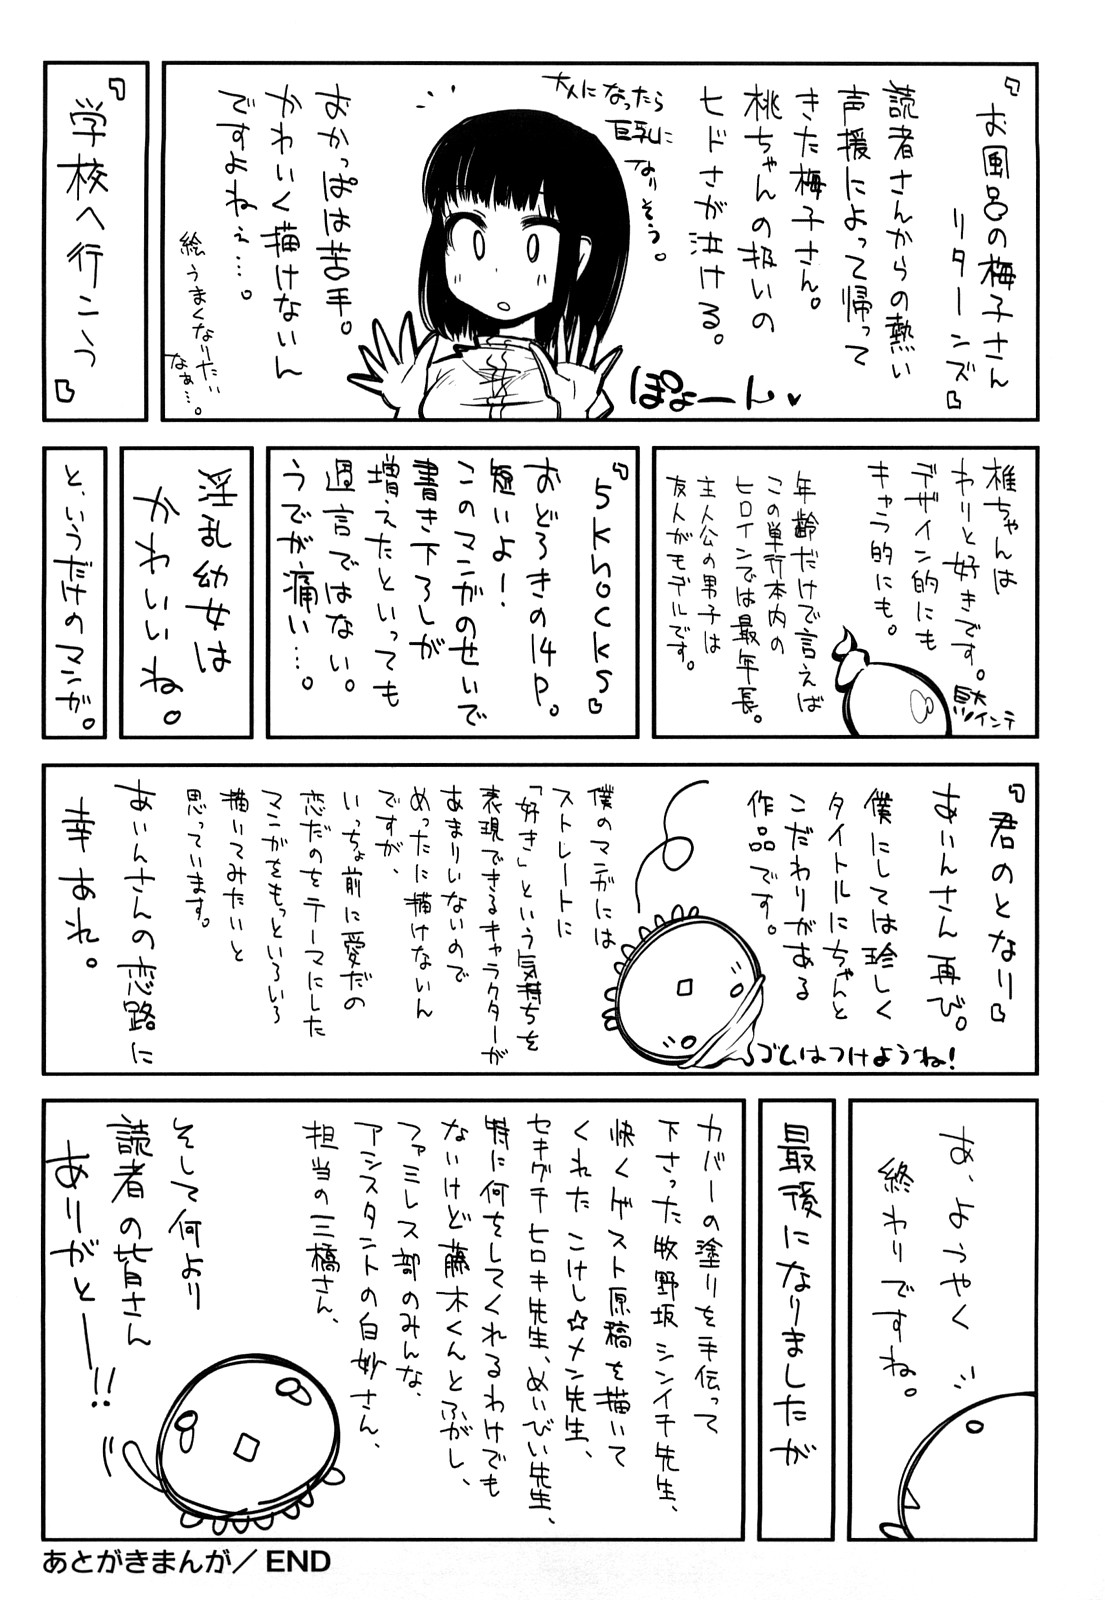 『お風呂の梅子さん
リターンズ』
読者さんからの熱い
声援によって帰って
きた梅子さん。
桃ちゃんの扱いの
ヒドさが泣ける。
おかっぱは苦手。
かわいく描けないん
ですよねぇ…。
絵うまくなりたい
なぁ…。
『学校へ行こう』
椎ちゃんは
わりと好きです。
デザイン的にも
キャラ的にも。
年齢だけで言えば
この単行本内の
ヒロインでは最年長。
主人公の男子は
友人がモデルです。
『5knocks』
おどろきの14P。
短いよ!
このマンガのせいで
書き下ろしが
増えたといっても
過言ではない。
うでが痛い…。
と、いうだけのマンガ。
『君のとなり』
あいんさん再び。
僕にしては珍しく
タイトルにちゃんと
こだわりがある
作品です。
ゴムはつけようね!
僕のマンガには
ストレートに
「好き」という気持ちを
表現できるキャラクターが
あまりいないので
めったに描けないん
ですが、
いっちょ前に愛だの
恋だのをテーマにした
マンガをもっといろいろ
描いてみたいと
思っています。
あいんさんの恋路に
幸あれ。
あ、ようやく
終わりですね。
最後になりましたが
カバーの塗りを手伝って
下さった牧野坂シンイチ先生、
快くゲスト原稿を描いて
くれたこけし☆メン先生、
セキグチヒロキ先生、めいびい先生、
特に何をしてくれるわけでも
ないけど藤木くんとふがし、
ファミレス部のみんな、
アシスタントの白妙さん、
担当の三橋さん、
そして何より
読者の皆さん
ありがとー!!
あとがきまんが／END